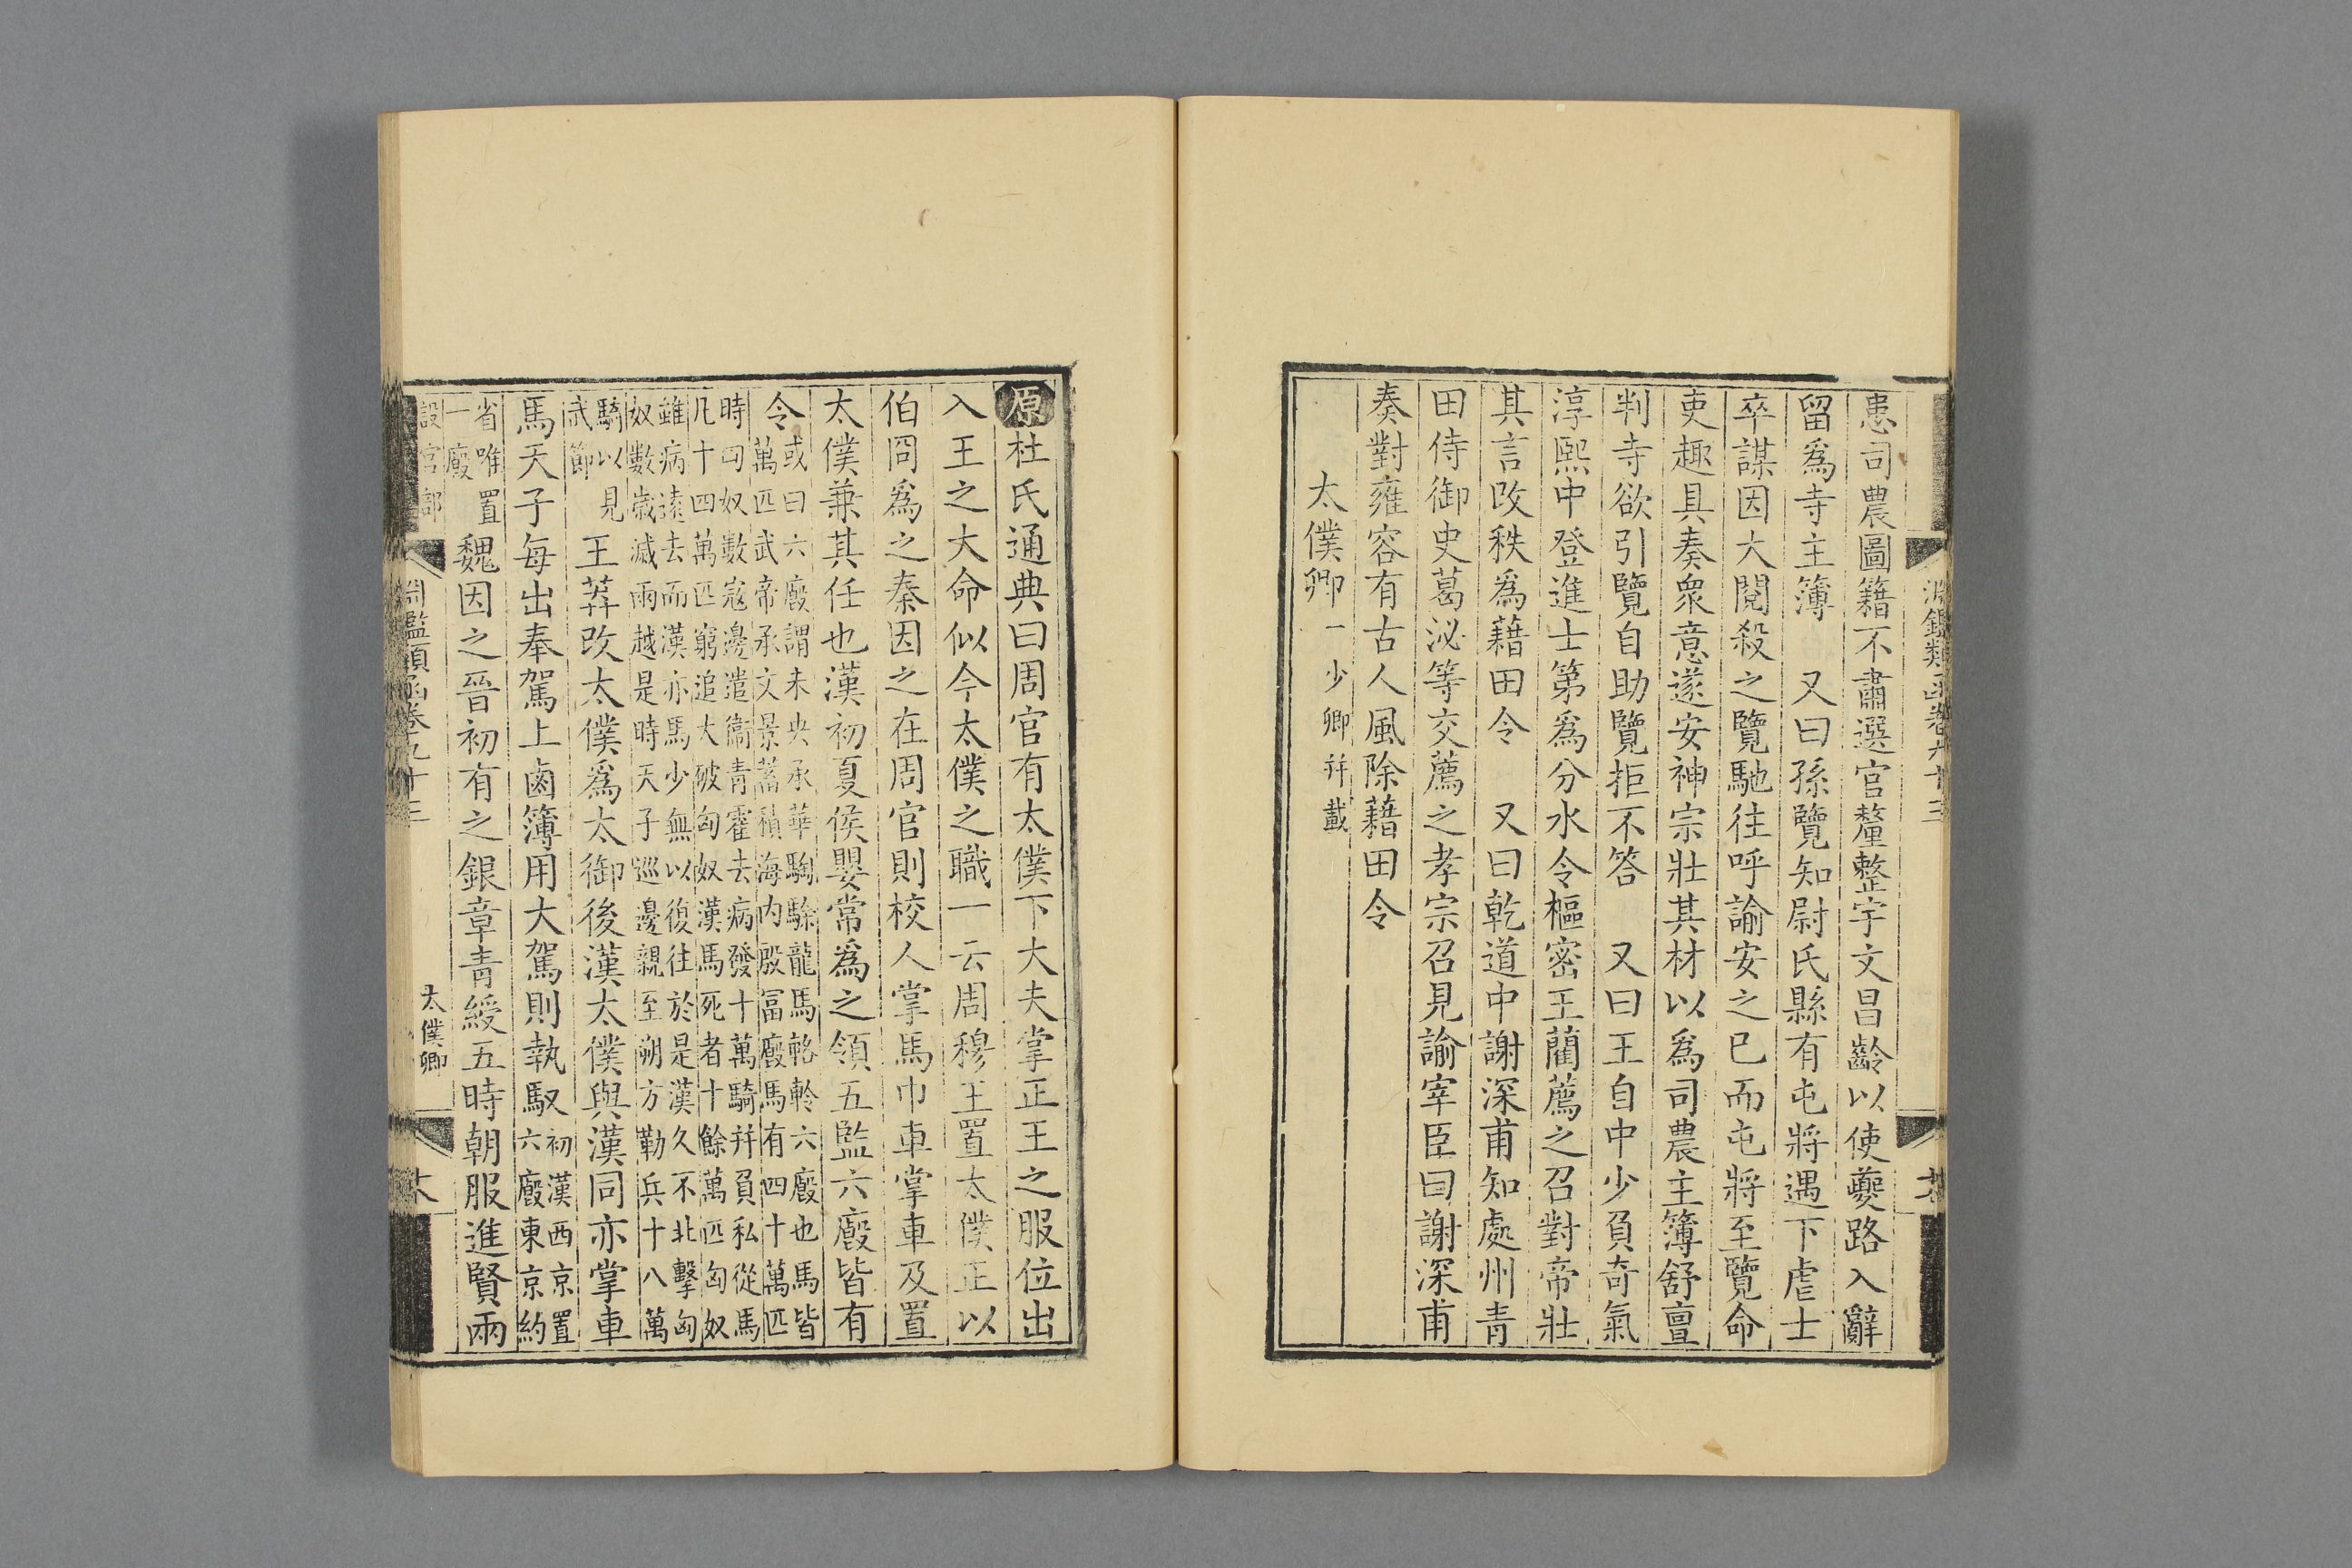 患司農圖籍不肅選官釐整宇文昌齡以使夔路入辭
留爲寺主簿　又曰孫覽知尉氏縣有屯將遇下虐士
卒謀因大閱殺之覽馳往呼諭安之已而屯將至覽命
吏趣具奏衆意遂安神宗壯其材以爲司農主簿舒亶
判寺欲引覽自助覽拒不答　又曰王自中少負奇氣
淳熙中登進士第爲分水令樞密王藺薦之召對帝壯
其言改秩爲藉田令　又曰乾道中謝深甫知處州青
田侍御史葛泌等交薦之孝宗召見諭宰臣曰謝深甫
奏對雍容有古人風除藉田令
太僕卿一少卿并載
原杜氏通典曰周官有太僕下大夫掌正王之服位出
入王之大命似今太僕之職一云周穆王置太僕正以
伯冏爲之秦因之在周官則校人掌馬巾車掌車及置
太僕兼其任也漢初夏侯嬰常爲之領五監六廄皆有
令
或曰六廄謂未央承華騊駼龍馬輅軨六廄也馬皆
萬匹武帝承文景蓄積海内殷富廄馬有四十萬匹
時匈奴數寇邊遣衞青霍去病發十萬騎并負私從馬
凡十四萬匹窮追大破匈奴漢馬死者十餘萬匹匈奴
雖病遠去而漢亦馬少無以復往於是漢久不北擊匈
奴數歲滅兩越是時天子巡邊親至朔方勒兵十八萬
騎以見
武節
王莽改太僕爲太御後漢太僕與漢同亦掌車
馬天子每出奉駕上鹵簿用大駕則執馭
初漢西京置
六廄東京約
省唯置
一廄
魏因之晉初有之銀章青綬五時朝服進賢兩
設官部
淵鑑類函卷九十三
太僕卿